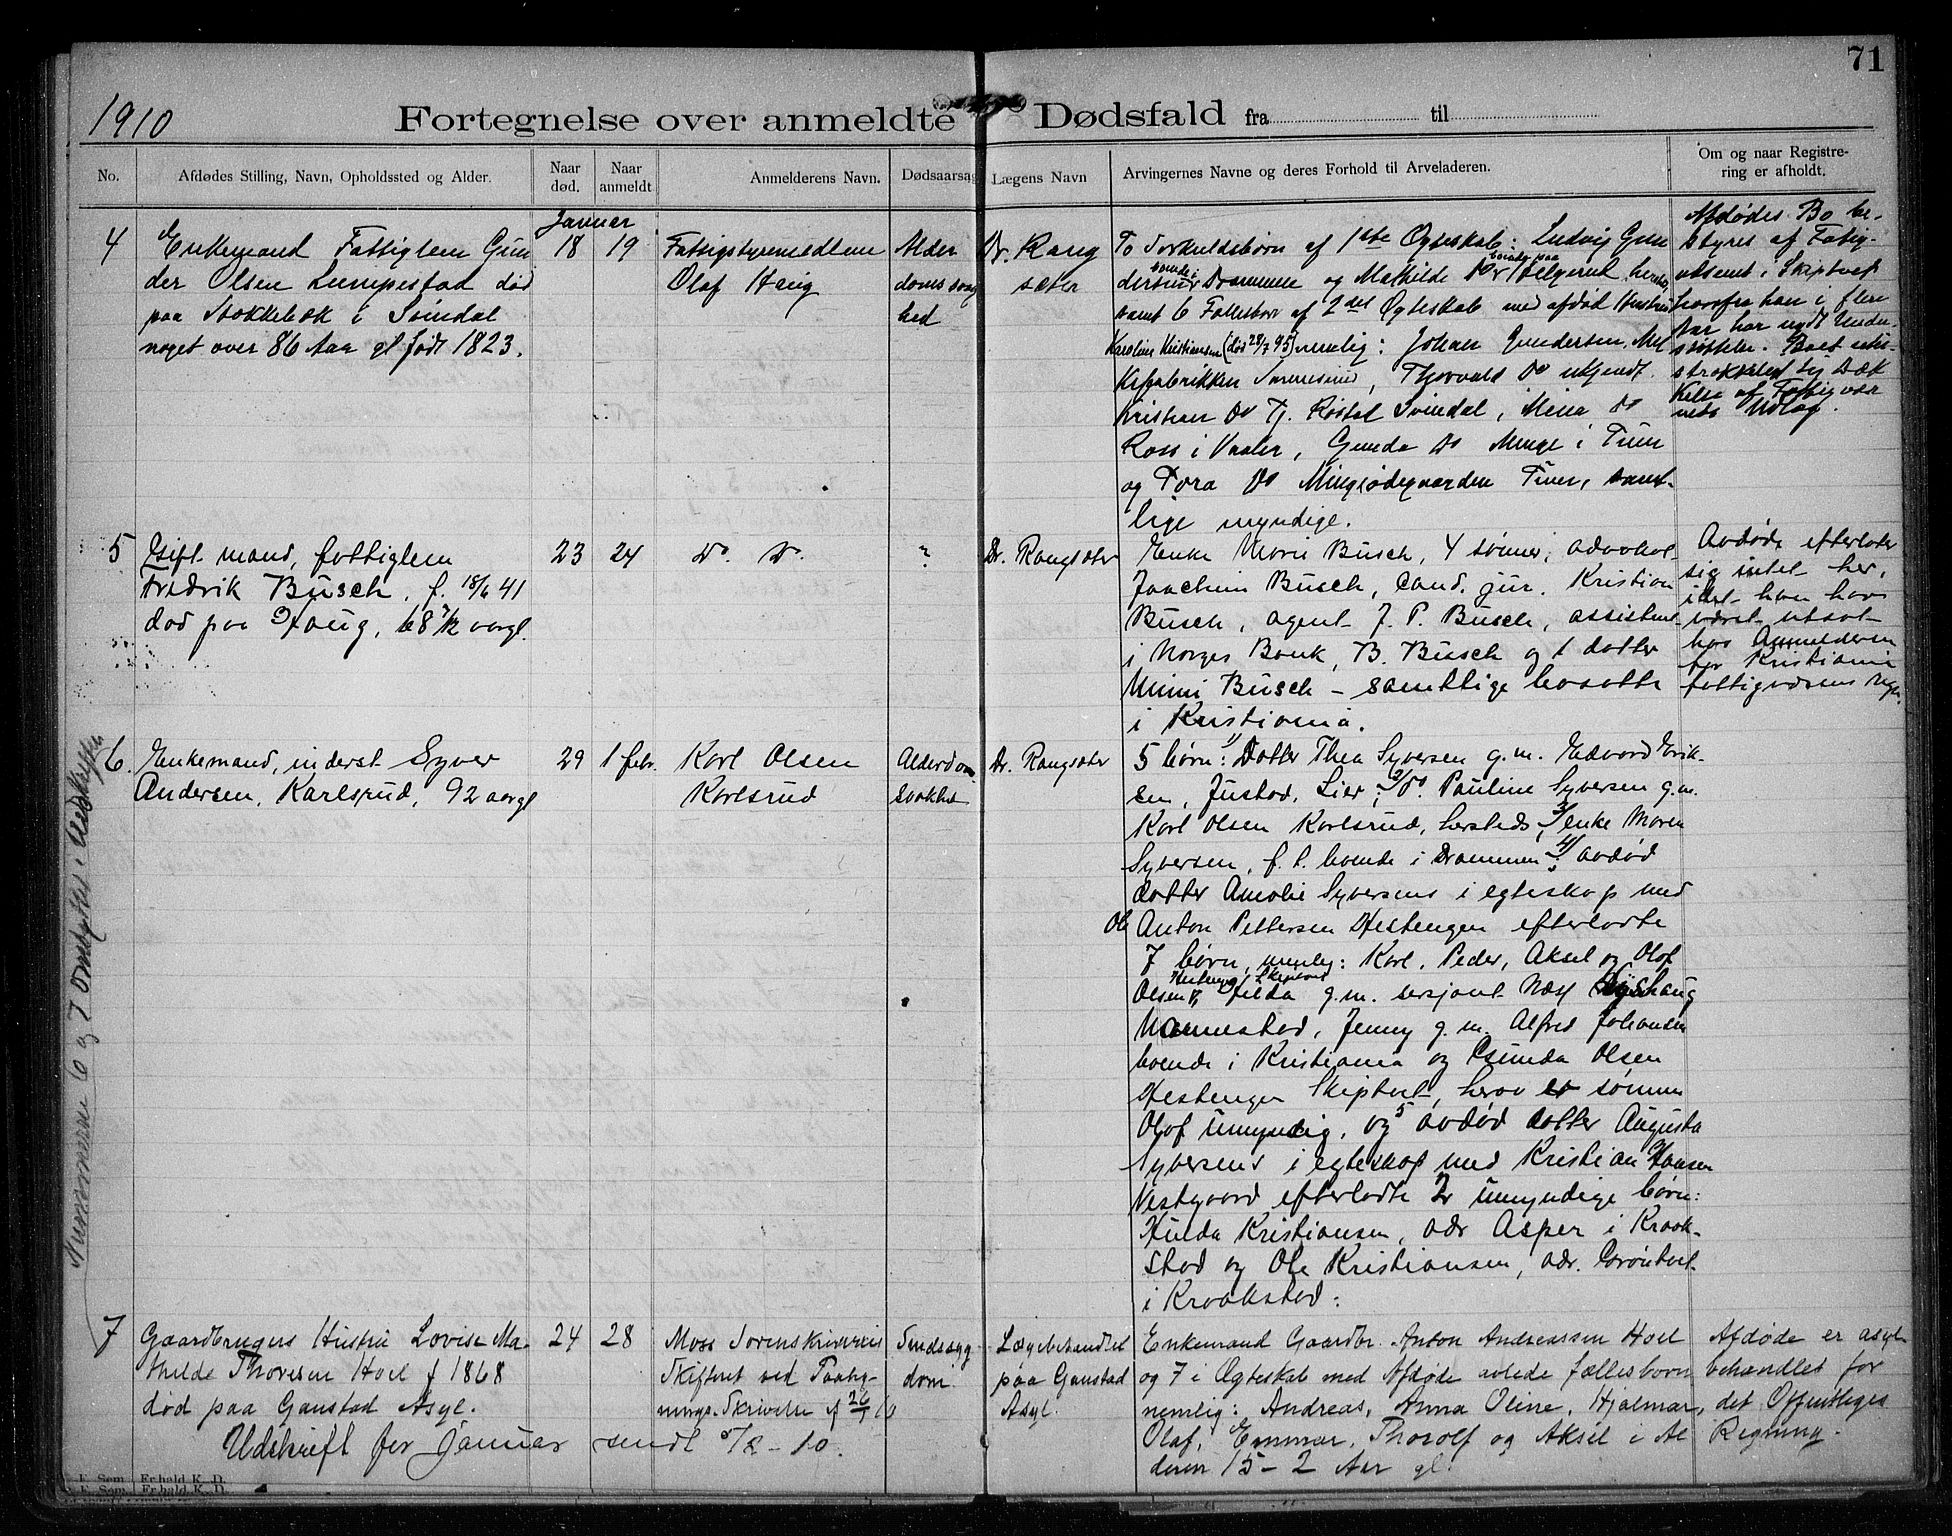 71
1910
Fortegnelse over anmeldte Dødsfald fra til
No.
Afdødes Stilling, Navn, Opholdssted og Alder.
Naar død.
Naar anmeldt.
Anmelderens Navn.
Dødsaarsag
Lægens Navn
Arvingernes Navne og deres Forhold til Arveladeren.
Om og naar Registre-
ring er afholdt.
Januar
4
Enkemand Fattiglem Gun
der Olsen Lumpestad død
paa Stokkebæk i Svindal
noget over 86 Aar gl født 1823.
18
19
Fattigstyremedlem
Olaf Haug
Alder
doms svag
hed
Dr. Rang
sæter
To Særkuldsbørn af 1ste Ægteskab: Ludvig Gun
dersen boende i Drammen og Mathilde Do boende paa Helgerud
samt 6 Fællesbørn af 2det Ægteskab med afdød Hustru
Karoline Kristiansen (død 28/7 95) nemlig: Johan Gundersen,
Thorvald Do ukjendt
Kristian Do Tj. Røstad Svindal, Mina Do
Ross i Vaaler, Gunda Do Minge i Tune
og Tora Do Mingeødegaarden Tune, samt-
lige myndige.
Afdødes Bo be-
styres af Fatig-
væsenet i Skiptvet
hvorfra han i flere
Aar har nydt Under-
støttelse. Boet
til Dæk
kelse af Fattigvæs
nets Udlæg.
5
Gift mand, fattiglem
Fredrik Busch, f. 18/6 41
død paa Haug, 68 7/12 aargl.
23
24
Do Do
?
Dr. Rangsæter
Enke Marie Busch, 4 sønner, advokat
Joachim Busch, cand. jur. Kristian
Busch, agent J. P. Busch, assistent
i Norges Bank, B. Busch og 1 datter
Mimi Busch – samtlige bosatte
i Kristiania.
Avdøde efterlater
sig intet her,
idet han har
været utsat
hos Anmelderen
for Kristiania
fattigvæsens regn.
6.
Enkemand, inderst Syver
Andersen, Karlsrud, 92 aargl
29
1 febr.
Karl Olsen
Karlsrud
Alderdom
svakhet
Dr. Rangsæter
5 børn: 1/ Datter Thea Syversen g.m. Edvard Erik-
sen, Justad, Lier; 2/ Do. Pauline Syversen g.m.
Karl Olsen Karlsrud, hersteds, 3/ enke Maren
Syversen, f. t. boende i Drammen; 4/ avdød
datter Amalie Syversens i egteskap med
Ole Anton Pettersen Hestengen efterladte
7 børn, nemlig: Karl, Peder, Aksel og Olaf
Olsen Hestengen, Skiptvet, Hilda g.m. sersjant Næss Nyshaug
Mannestad, Jenny g.m. Alfred Johansen
boende i Kristiania og Gunda Olsen
Hestengen Skiptvet, herav er sønnen
Olaf umyndig, og 5 avdød datter Augusta
Syversens i egteskap med Kristian Hansen
Vestgaard efterladte 2 umyndige børn:
Hulda Kristiansen, adr Asper i Kraak-
stad og Ole Kristiansen, adr. Grøntvet
i Kraakstad:
Nummerne 6 og 7 ombyttes i Avskriften
7
Gaardbrugers Hustru Lovise Ma-
thilde Thoresen Hoel f 1868
død paa Gaustad Asyl.
24
28
Moss Sorenskriveris
Skifteret ved Paateg-
nings. Skrivelse af 26/1 10
Sindssyg
dom.
Lægebehandlet
paa Gaustad
Asyl.
Enkemand Gaardbr. Anton Andreassen Hoel
og 7 i Ægteskab med Afdøde avlede fællesbørn
nemlig: Andreas, Anna Oline, Hjalmar,
Olaf, Emma, Thorolf og Aksel i Al
deren 15 – 2 Aar gl.
Afdøde er asyl
behandlet for
det Offentliges
Regning.
Udskrift for Januar sendt 5/2 – 10.